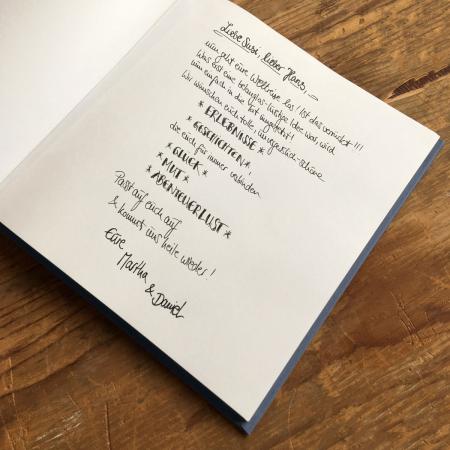 Liebe Susi, lieber Hans,
nun geht eure Weltreise los! Ist das verrückt!!!
Was erst eine Idee war, wird
nun einfach in die Tat umgesetzt!
Wir wünschen euch tolle, unglaublich schöne
* ERLEBNISSE *
* GESCHICHTEN *
die euch für immer verbinden
* GLÜCK *
* MUT *
* ABENTEUERLUST *
Passt auf euch auf
& kommt uns heile wieder!
Eure
Martha & Daniel